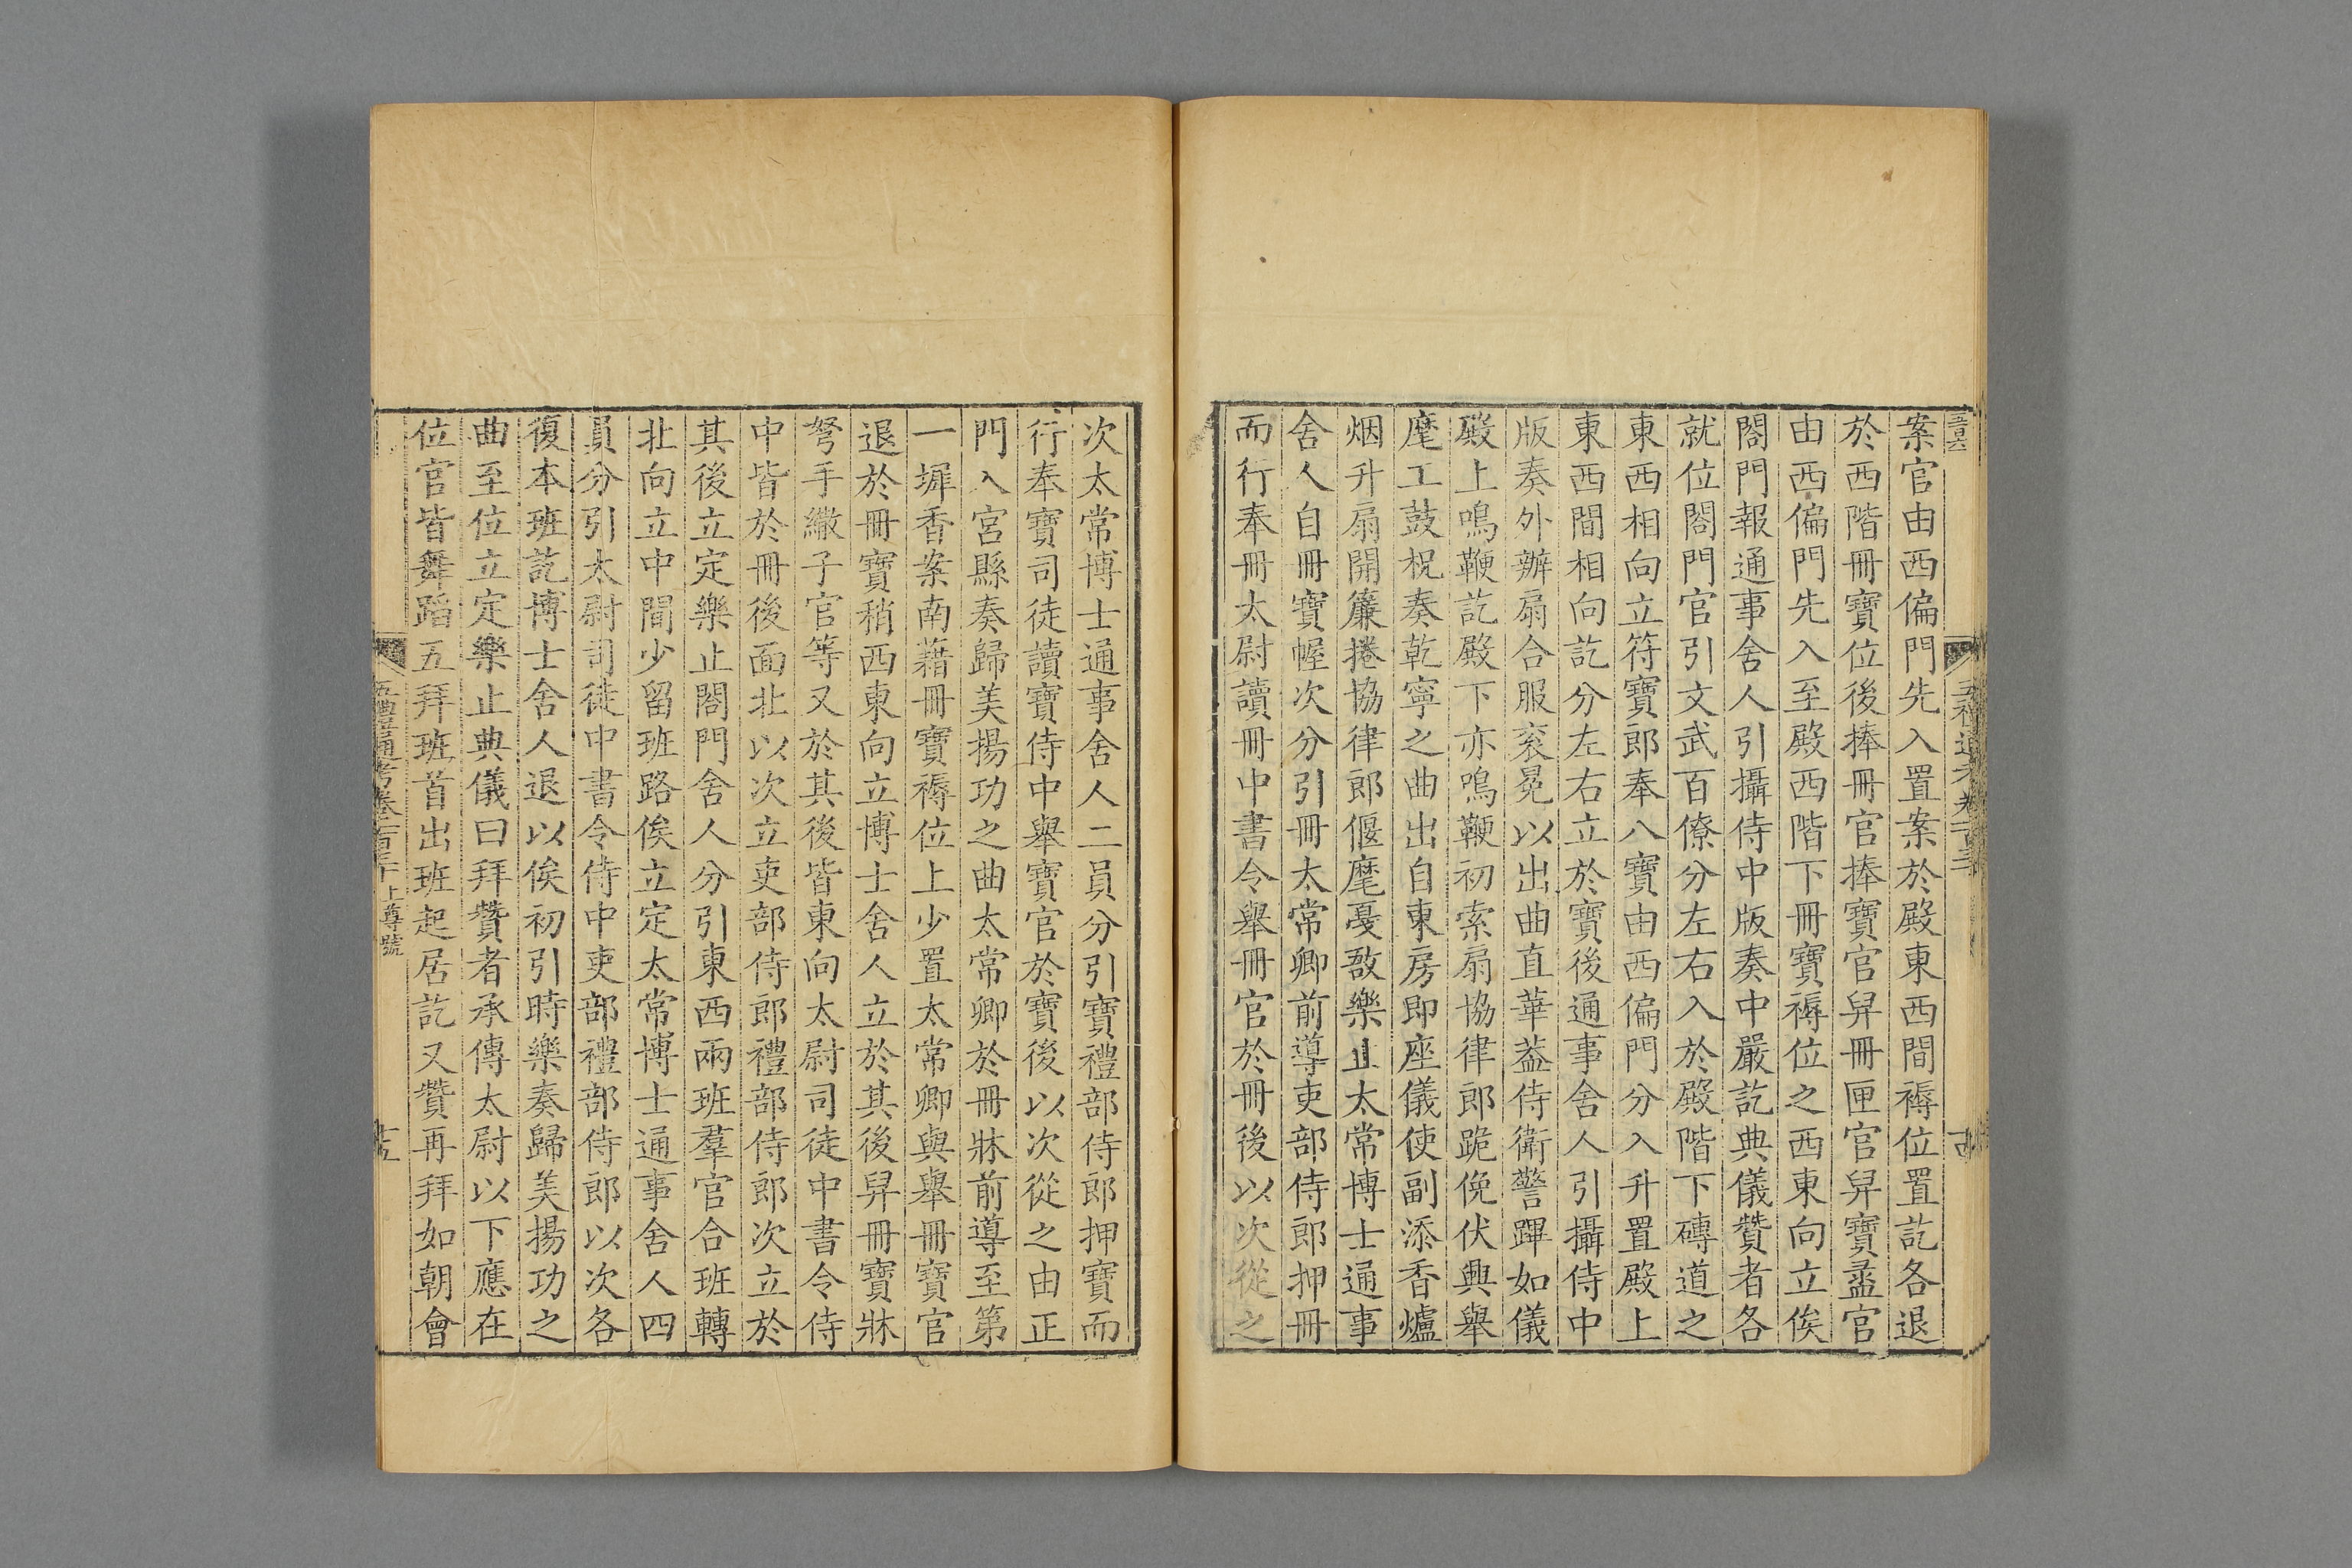 案官由西偏門先入置案於殿東西間褥位置訖各退
於西階冊寶位後捧冊官捧寶官舁冊匣官舁寶盝官
由西偏門先入至殿西階下冊寶褥位之西東向立俟
閤門報通事舍人引攝侍中版奏中嚴訖典儀贊者各
就位閤門官引文武百僚分左右入於殿階下磚道之
東西相向立符寶郎奉八寶由西偏門分入升置殿上
東西間相向訖分左右立於寶後通事舍人引攝侍中
版奏外辦扇合服衮冕以出曲直華葢侍衛警蹕如儀
殿上鳴鞭訖殿下亦鳴鞭初索扇協律郎跪俛伏興舉
麾工鼓柷奏乾寧之曲出自東房即座儀使副添香爐
烟升扇開簾捲協律郎偃麾戞敔樂止太常博士通事
舍人自冊寶幄次分引冊太常卿前導吏部侍郎押冊
而行奉冊太尉讀冊中書令舉冊官於冊後以次從之
次太常博士通事舍人二員分引寶禮部侍郎押寶而
行奉寶司徒讀寶侍中舉寶官於寶後以次從之由正
門入宮縣奏歸美揚功之曲太常卿於冊牀前導至第
一墀香案南藉冊寶褥位上少置太常卿與舉冊寶官
退於冊寶稍西東向立博士舍人立於其後舁冊寶牀
弩手繖子官等又於其後皆東向太尉司徒中書令侍
中皆於冊後面北以次立吏部侍郎禮部侍郎次立於
其後立定樂止閤門舍人分引東西兩班羣官合班轉
北向立中間少留班路俟立定太常博士通事舍人四
員分引太尉司徒中書令侍中吏部禮部侍郎以次各
復本班訖博士舍人退以俟初引時樂奏歸美揚功之
曲至位立定樂止典儀曰拜贊者承傳太尉以下應在
位官皆舞蹈五拜班首出班起居訖又贊再拜如朝會
五禮通考卷一百三十 上尊號 十五